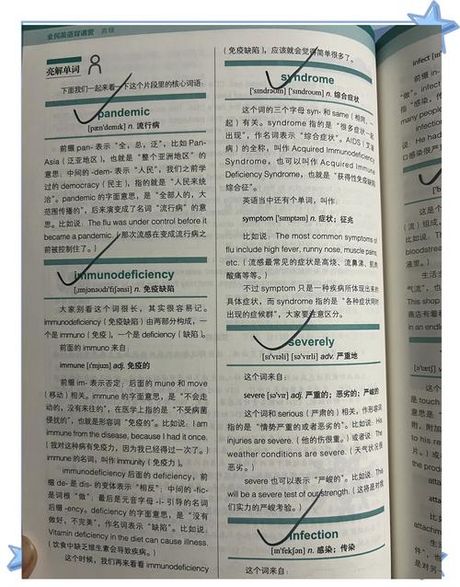 亮解单词
下面我们一起来看一下这个片段里的核心词语：
pandemic
[pænˈdemɪk] n. 流行病
前缀 pan- 表示“全，总，泛”，比如 Pan-
Asia（泛亚地区），也就是“整个亚洲地区”的
意思；中间的 -dem- 表示“人民”，我们之前学
过的 democracy（民主），指的就是“人民来统
治”。pandemic 的字面意思，是“全部人的，大
范围传播的”，后来演变成了名词“流行病”的意
思。比如说：The flu was under control before it
became a pandemic.（那次流感在变成流行病之
前被控制住了。）
immunodeficiency
n. 免疫缺陷
大家别看这个词很长，其实很容易记。
immunodeficiency（免疫缺陷）由两部分构成，一
个是 immuno（免疫），一个是 deficiency（缺陷）。
前面的 immuno 来自：
immune [ɪˈmjuːn] adj. 免疫的
前缀 im- 表示否定；后面的 mune 和 move
（移动）相关。immune 的字面意思，是“不会走
动的，没有来往的”，在医学上指的是“不受病菌
侵扰的”，也就是形容词“免疫的”。比如说：I am
immune from the disease, because I had it once.
（我对这种病有免疫力，因为我已经得过一次了。）
immune 的名词，叫作 immunity（免疫力）。
immunodeficiency 后面的 deficiency，前
缀 de- 是 dis- 的变体表示“相反”；中间的 -fic-
是词根“做”，最后是元音字母 -i- 引导的名词
后缀 -ency。deficiency 的字面意思，是“没有
做好，不完美”，作名词表示“缺陷”。比如说：
Vitamin deficiency in the diet can cause illness.
（饮食中缺乏维生素会导致疾病。）
这个时候，我们再来看看 immunodeficiency
（免疫缺陷），应该就会觉得简单很多了。
syndrome
[ˈsɪndrəʊm] [ˈsɪndroʊm] n. 综合症
这个词的三个字母 syn- 和 same（相同，一
起）有关。syndrome 指的是“很多症状一起
出现”，作名词表示“综合症”。AIDS（艾滋
病）的全称，叫作 Acquired Immunodeficiency
Syndrome，也可以叫作 Acquired Immune
Deficiency Syndrome，也就是“获得性免疫缺陷
综合征”。
英语当中还有个单词，叫作：
symptom [ˈsɪmptəm] n. 症状；征兆
比如说：The most common symptoms of
flu include high fever, runny nose, muscle pains,
etc.（流感最常见的症状是高烧、流鼻涕、肌肉
酸痛等等。）
不过 symptom 只是一种疾病所体现出来的
具体症状，而 syndrome 指的是“各种症状同时
出现的症候群”，大家要注意区分。
severely
[sɪˈvɪəli] [səˈvɪrli] adv. 严重地
这个词来自：
severe [səˈvɪr] adj. 严重的；恶劣的；严峻的
这个词和 serious（严肃的）相关，作形容词
指的是“情势严重的或者恶劣的”。比如说：His
injuries are severe.（他的伤很重。）或者说：The
weather conditions are severe.（天气状况很
恶劣。）
severe 也可以表示“严峻的”。比如说：The
will be a severe test of our strength.（这将是对我
们实力的严峻考验。）
infection
[ɪnˈfekʃən] n. 感染；传染
这个词来自：